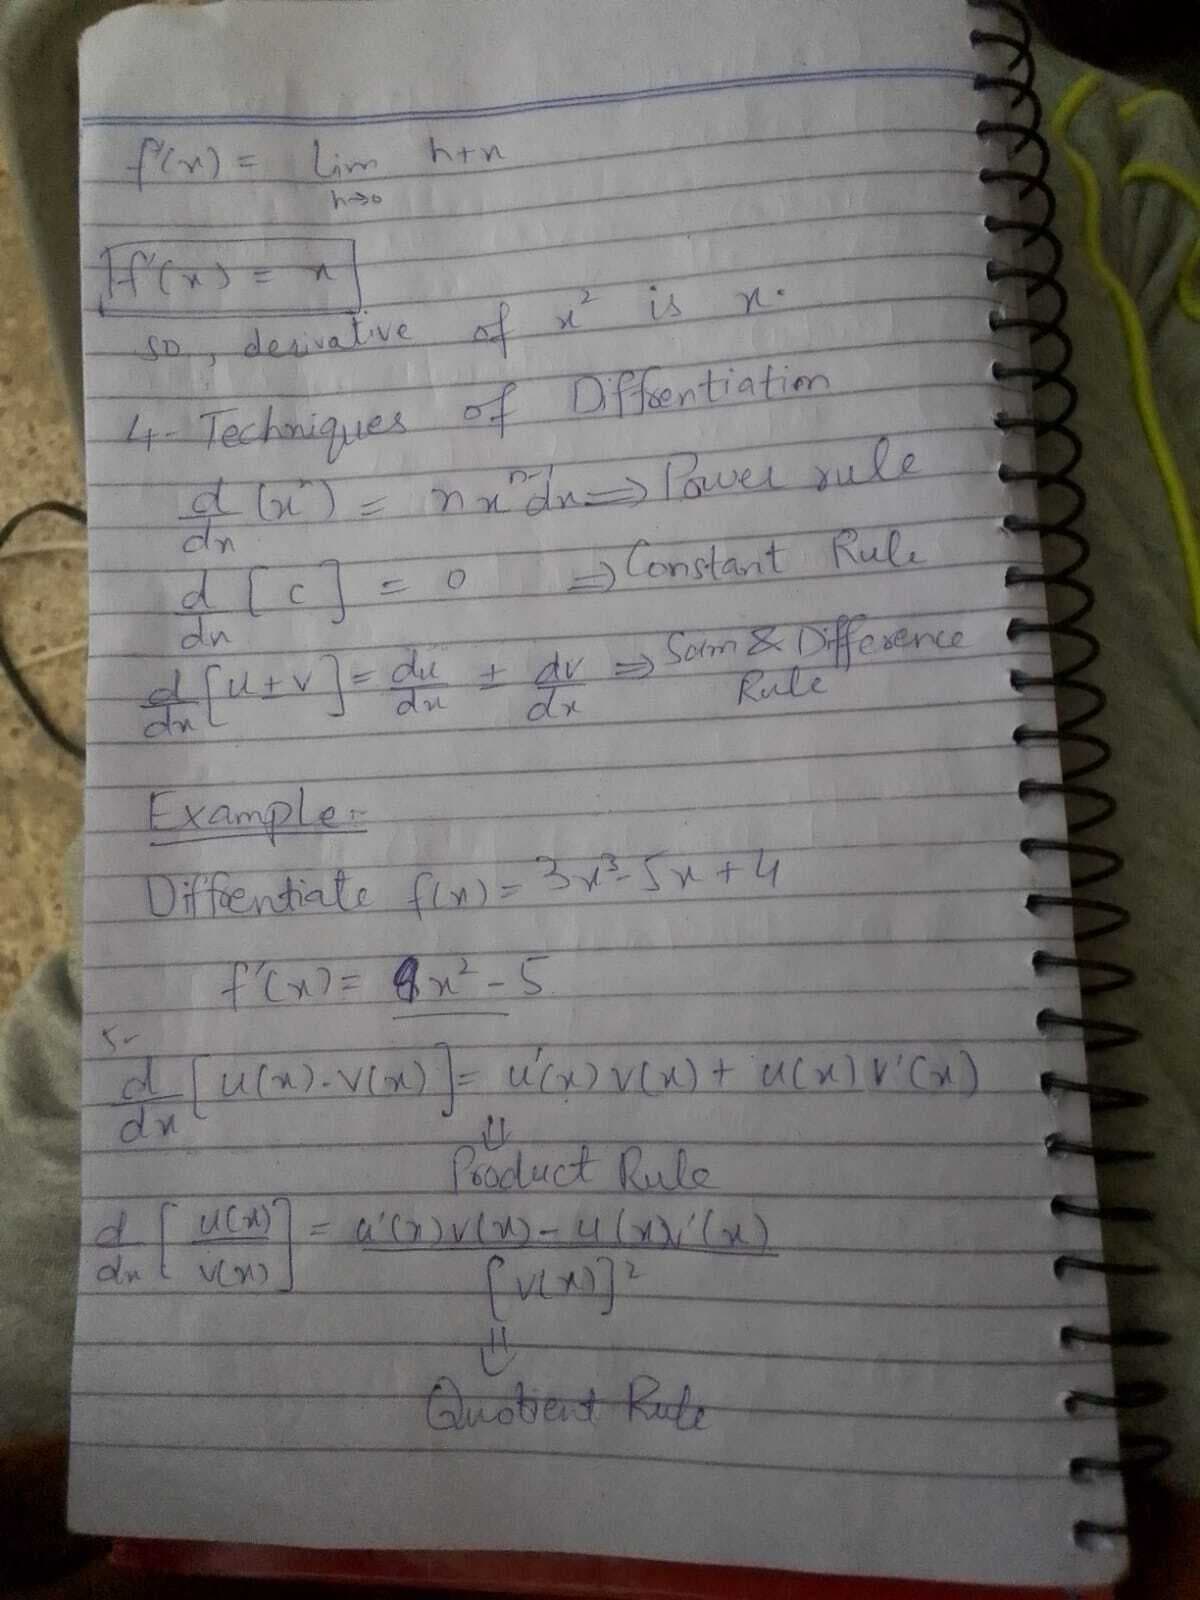 f'(x) = Lim h+x
h→0
f'(x) = x
so, derivative of x² is x.
4- Techniques of Diffrentiation
d/dx (xⁿ) = nxⁿ⁻¹dx ⇒ Power rule
d/dx [c] = 0 ⇒ Constant Rule
d/dx [u±v] = du/dx ± dv/dx ⇒ Sum & Difference
Rule
Example:-
Diffrentiate f(x) = 3x³-5x+4
f'(x) = 9x² - 5
5-
d/dx [u(x).v(x)] = u'(x)v(x) + u(x)v'(x)
⇓
Product Rule
d/dx [u(x)/v(x)] = u'(x)v(x) - u(x)v'(x) / [v(x)]²
⇓
Quotient Rule